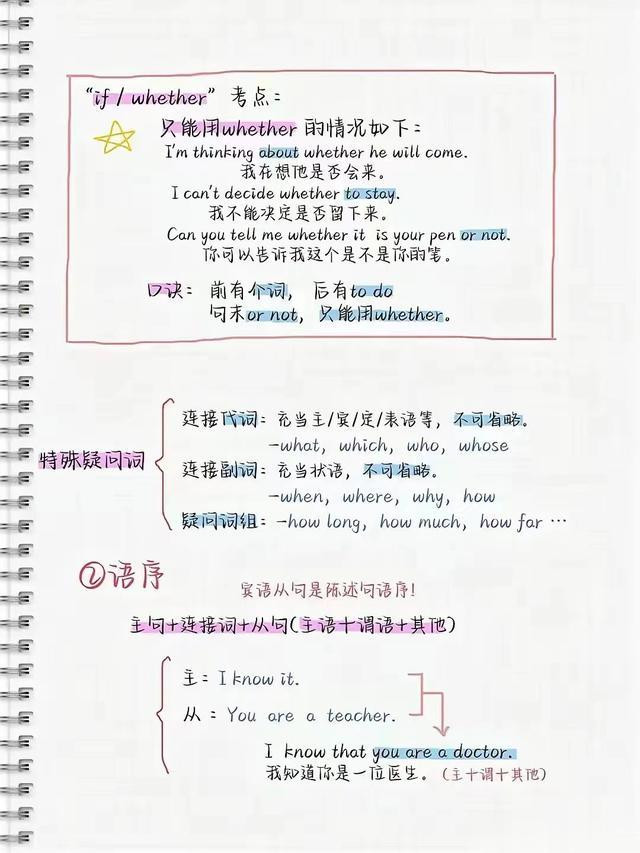 “if / whether” 考点：
只能用whether 的情况如下：
I'm thinking about whether he will come.
我在想他是否会来。
I can't decide whether to stay.
我不能决定是否留下来。
Can you tell me whether it is your pen or not.
你可以告诉我这个是不是你的笔。
口诀： 前有介词， 后有to do
句末or not， 只能用whether。
特殊疑问词
连接代词：充当主/宾/定/表语等，不可省略。
-what，which，who，whose
连接副词：充当状语，不可省略。
-when，where，why，how
疑问词组：-how long，how much，how far …
②语序
宾语从句是陈述句语序！
主句+连接词+从句(主语+谓语+其他)
主：I know it.
从：You are a teacher.
I know that you are a doctor.
我知道你是一位医生。（主+谓+其他）